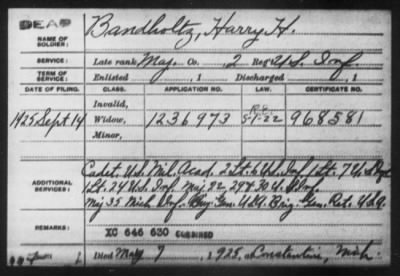 DEAD
NAME OF SOLDIER: Bandholtz, Harry H.
SERVICE: Late rank Maj. Co. , 2 Reg't U.S. Inf.
TERM OF SERVICE: Enlisted , 1 Discharged , 1
DATE OF FILING. CLASS. APPLICATION NO. LAW. CERTIFICATE NO.
Invalid,
1925 Sept 14 Widow, 1236973 R.E. 5-1-22 968581
Minor,
ADDITIONAL SERVICES: Cadet. U.S. Mil. Acad. 2 Lt. 6 U.S. Inf. 1 Lt. 7 U.S. Inf.
1 Lt. 24 U.S. Inf. Maj. 22, 29 & 30 U.S. Inf.
Maj 35 Mich. Inf. Brig. Gen. U.S.A. Brig. Gen. Ret. U.S.A.
REMARKS: XC 646 630 COMBINED
Died May 7, 1925, at Constantine, Mich.